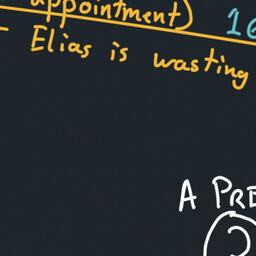 appointment)
Elias is wasting
A